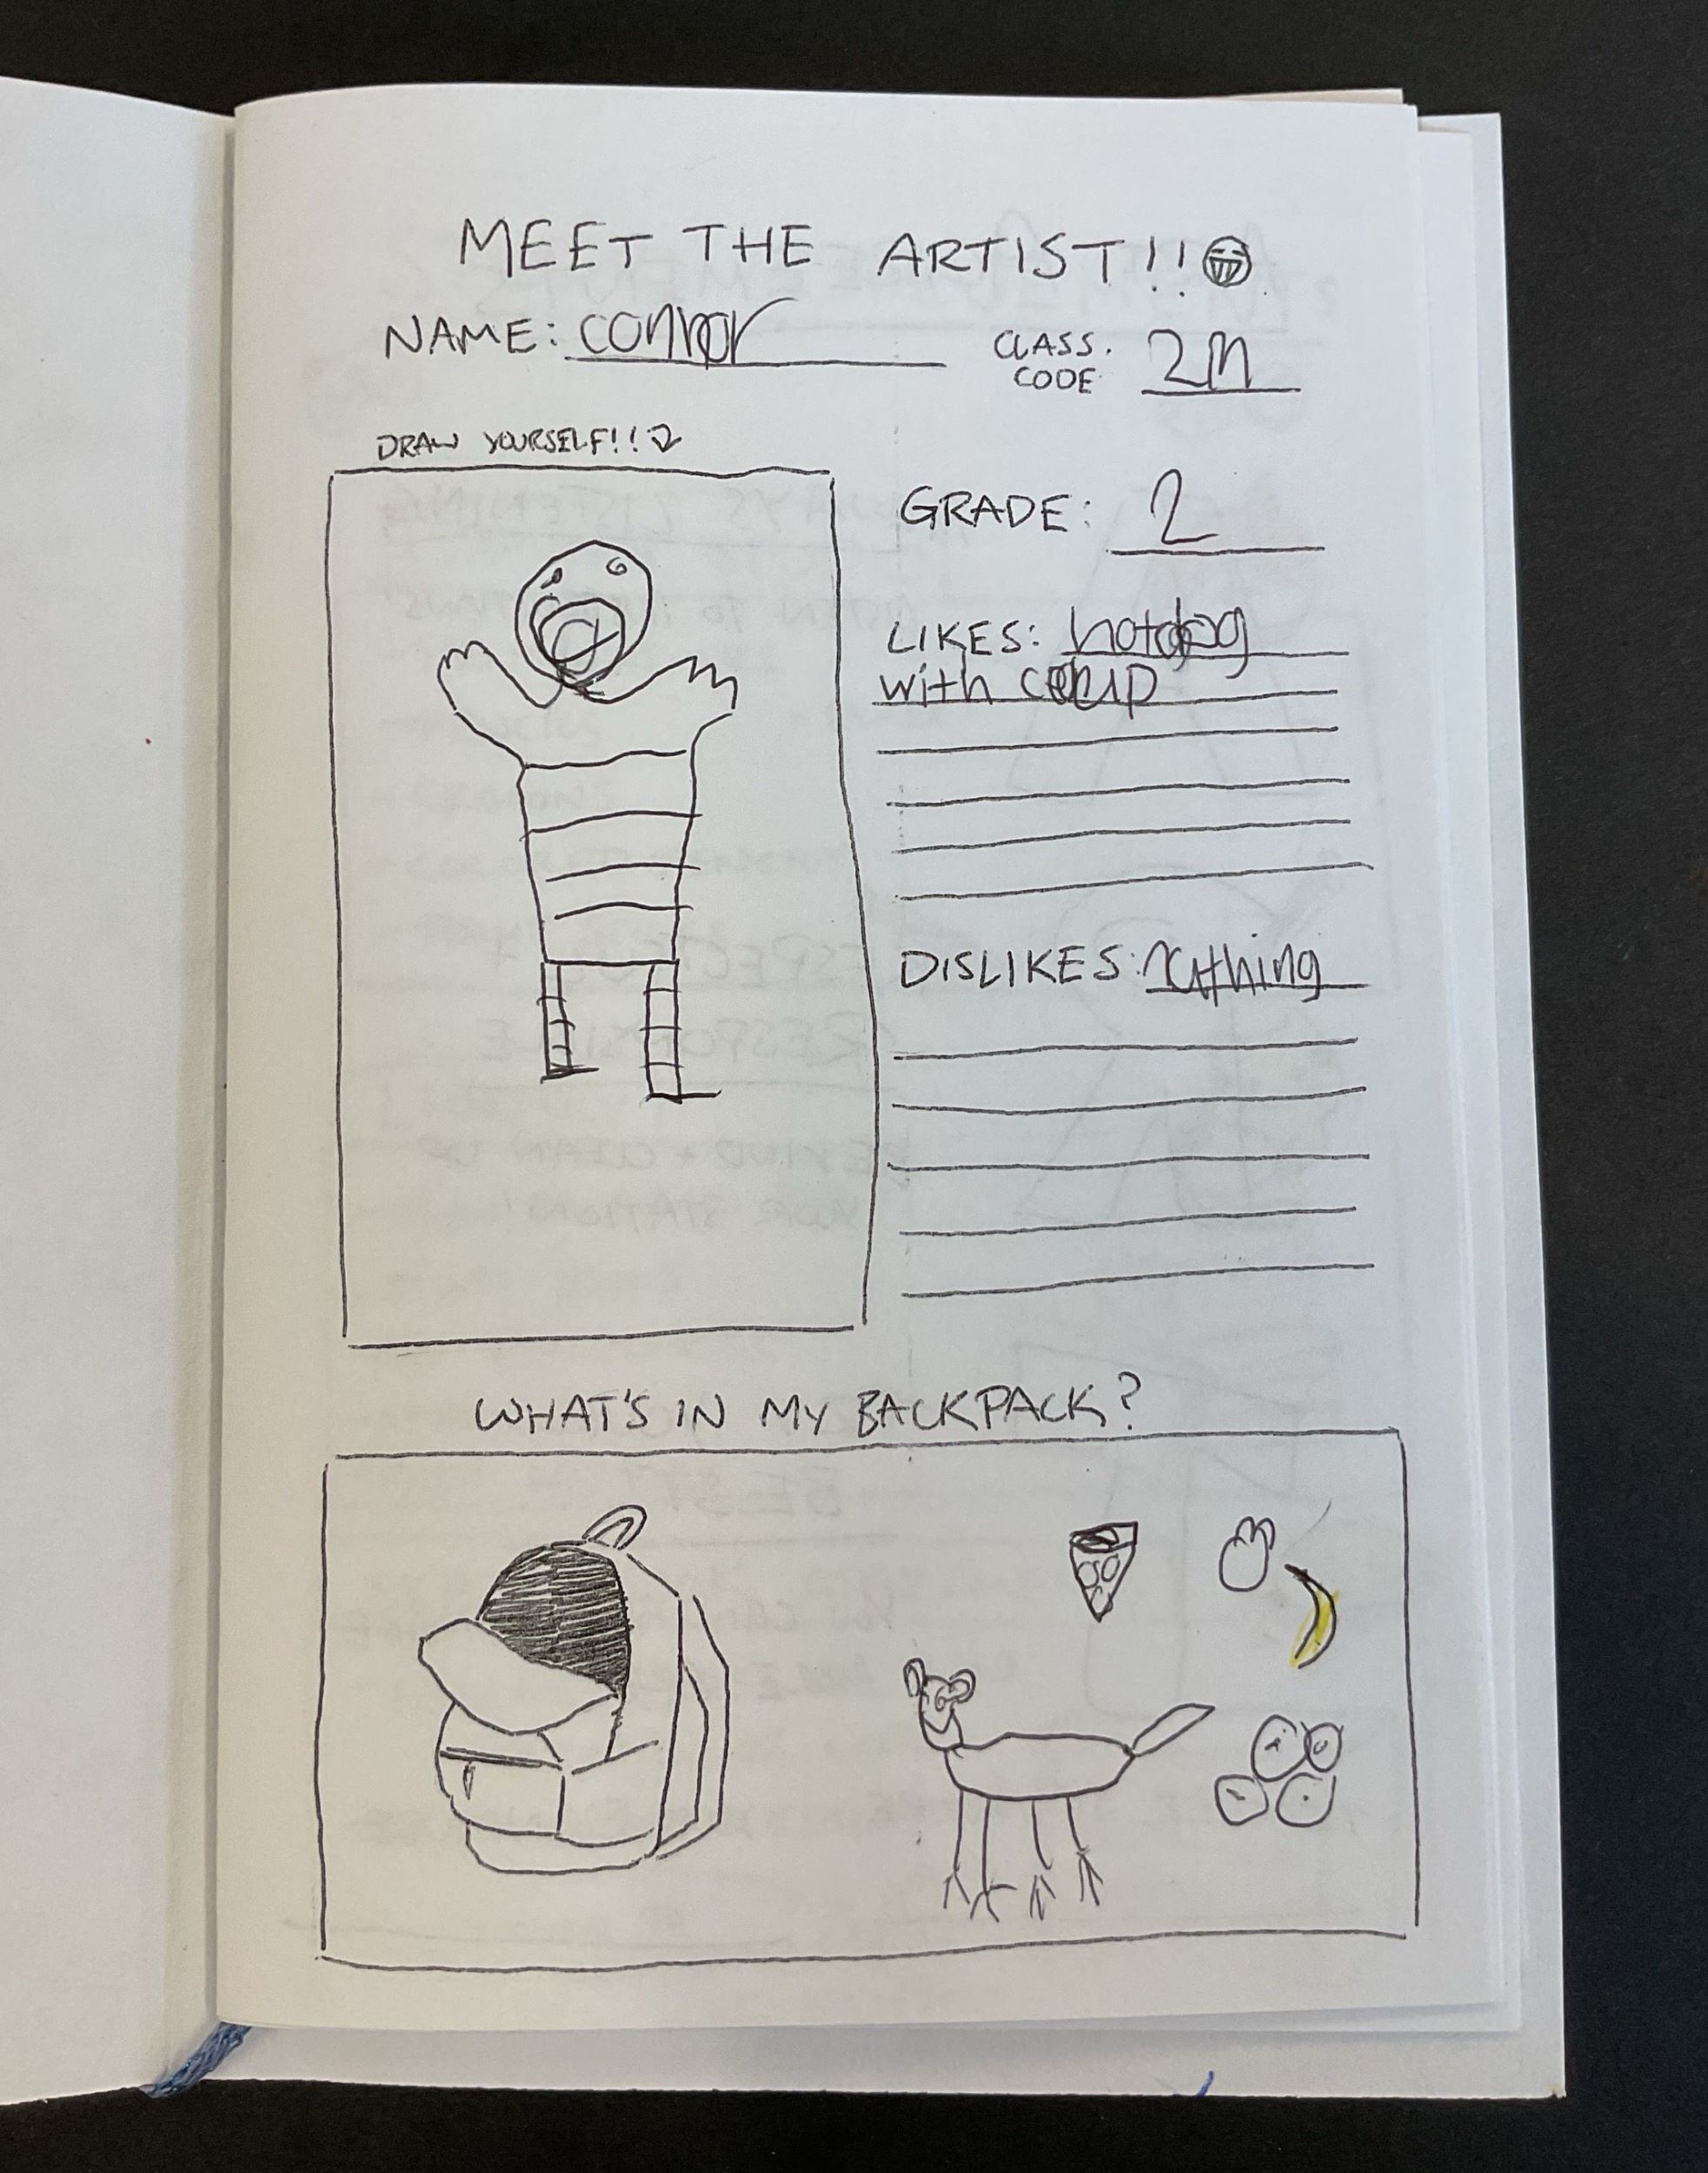 MEET THE ARTIST!!
NAME: connor
CLASS. CODE 2M
DRAW YOURSELF!!
GRADE: 2
LIKES: hotdog
with
DISLIKES: nuthing
WHAT'S IN MY BACKPACK?